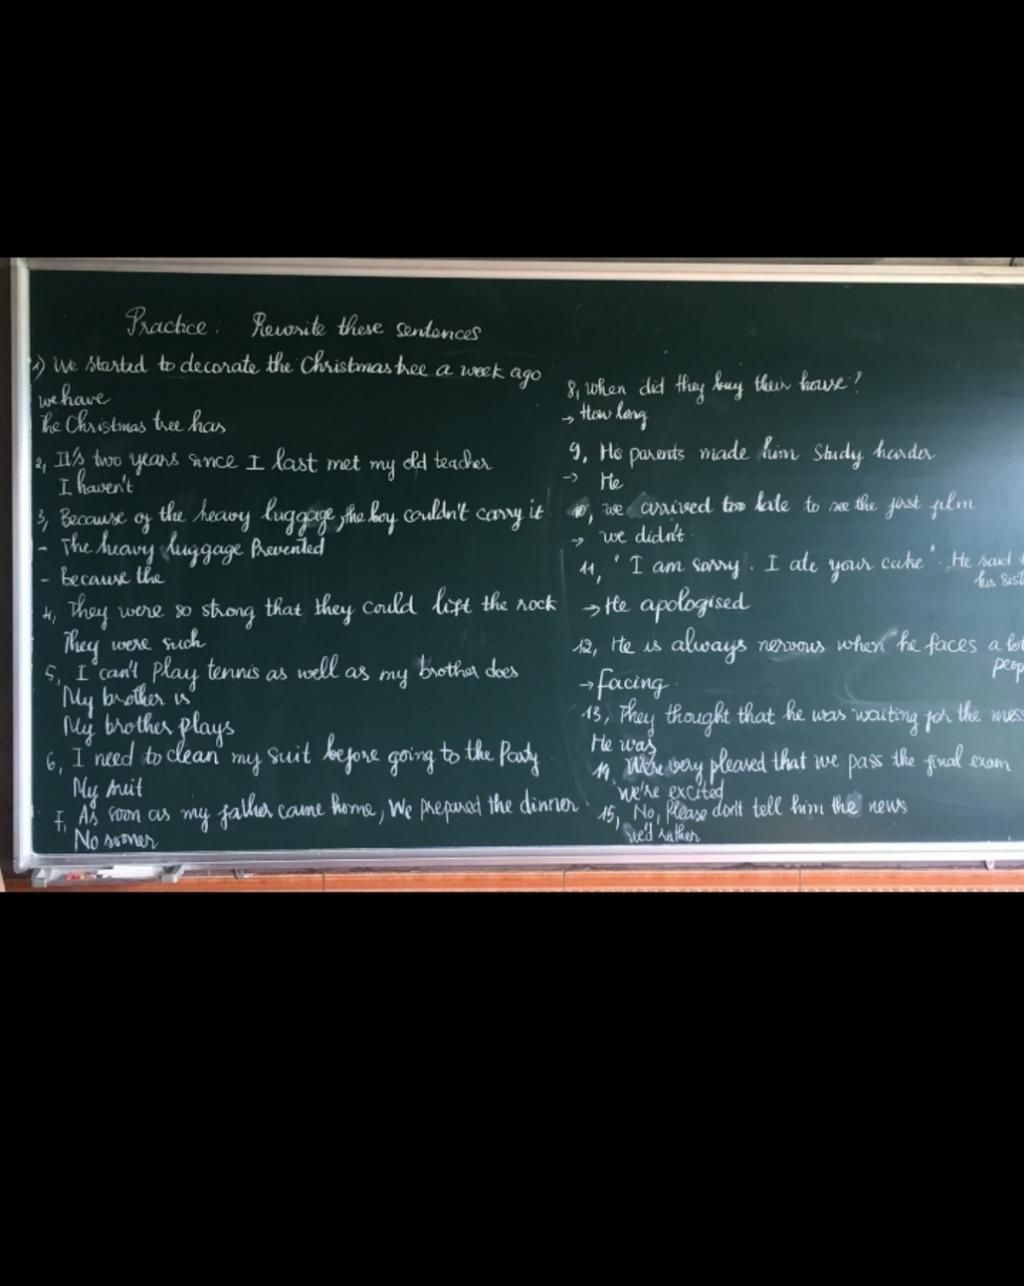 Practice: Rewrite these sentences
1) We started to decorate the Christmas tree a week ago
we have
The Christmas tree has
2, It's two years since I last met my old teacher
I haven't
3, Because of the heavy luggage, the boy couldn't carry it
- The heavy luggage Prevented
- Because the
4, They were so strong that they could lift the rock
They were such
5, I can't play tennis as well as my brother does
My brother is
My brother plays
6, I need to clean my suit before going to the Party
My suit
7, As soon as my father came home, We prepared the dinner.
No sooner
8, When did they buy their house?
→ How long
9, His parents made him study harder
→ He
10, we arrived too late to see the first film
→ we didn't
11, "I am sorry. I ate your cake". He said
his sist
→ He apologised
12, He is always nervous when he faces a lot
peop
→ facing
13, They thought that he was waiting for the mess
He was
14, We're very pleased that we pass the final exam
we're excited
15, No, Please don't tell him the news
We'd rather